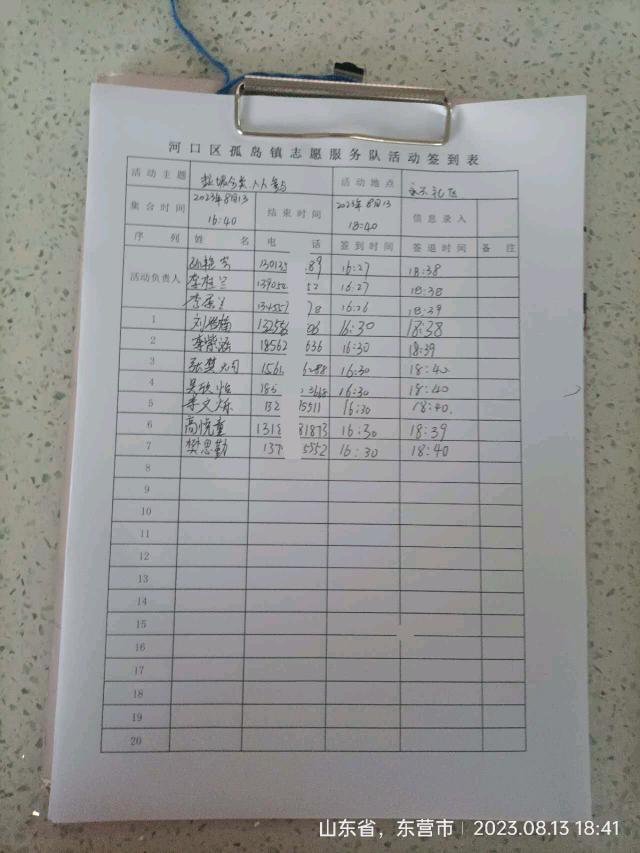 河口区孤岛镇志愿服务队活动签到表
活动主题 人人参与 活动地点 社区
集合时间 2023年8月13 16:40 结束时间 2023年8月13 18:40 信息录入
序列 姓名 电话 签到时间 签退时间 备注
活动负责人 16:27 18:38
李桂兰 139052 52 16:27 18:38
134557 78 16:26 18:39
1 刘 16:30 18:38
2 李紫涵 18562 636 16:30 18:39
3 156 16:30 18:40
4 吴欣怡 3668 16:30 18:40
5 李文烁 132 5511 16:30 18:40.
6 高悦童 1318 81873 16:30 18:39
7 樊思勤 137 5552 16:30 18:40
8
9
10
11
12
13
14
15
16
17
18
19
20
山东省，东营市 | 2023.08.13 18:41